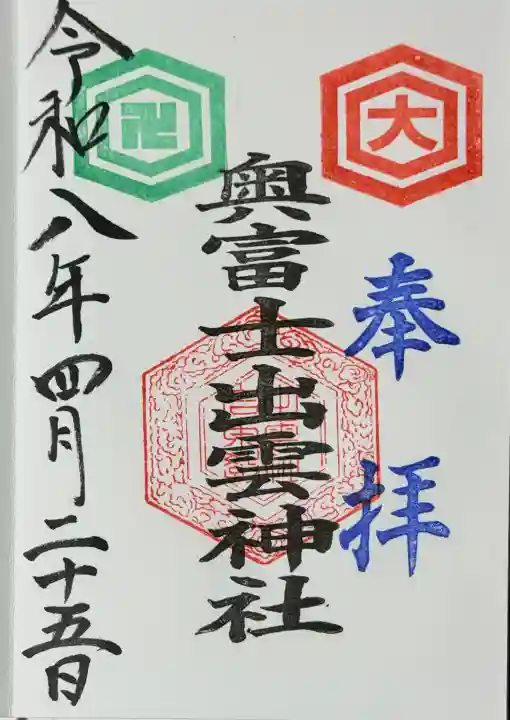 大
奉拝
奥富士出雲神社
卍
令和八年四月二十五日